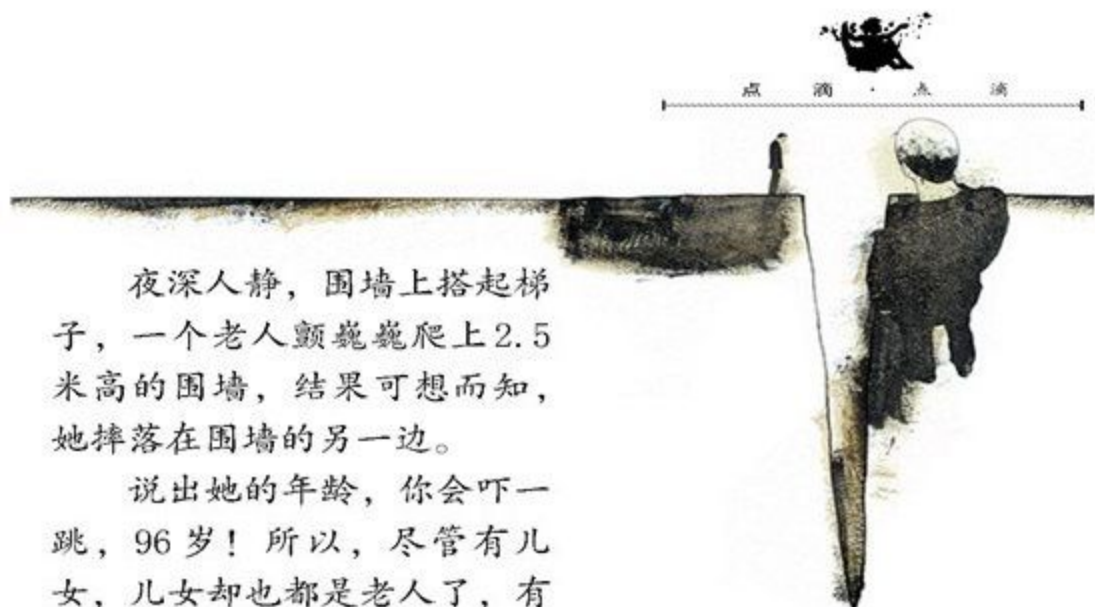 点 滴 · 点 滴
夜深人静，围墙上搭起梯
子，一个老人颤巍巍爬上2.5
米高的围墙，结果可想而知，
她摔落在围墙的另一边。
说出她的年龄，你会吓一
跳，96岁！所以，尽管有儿
女，儿女却也都是老人了，有